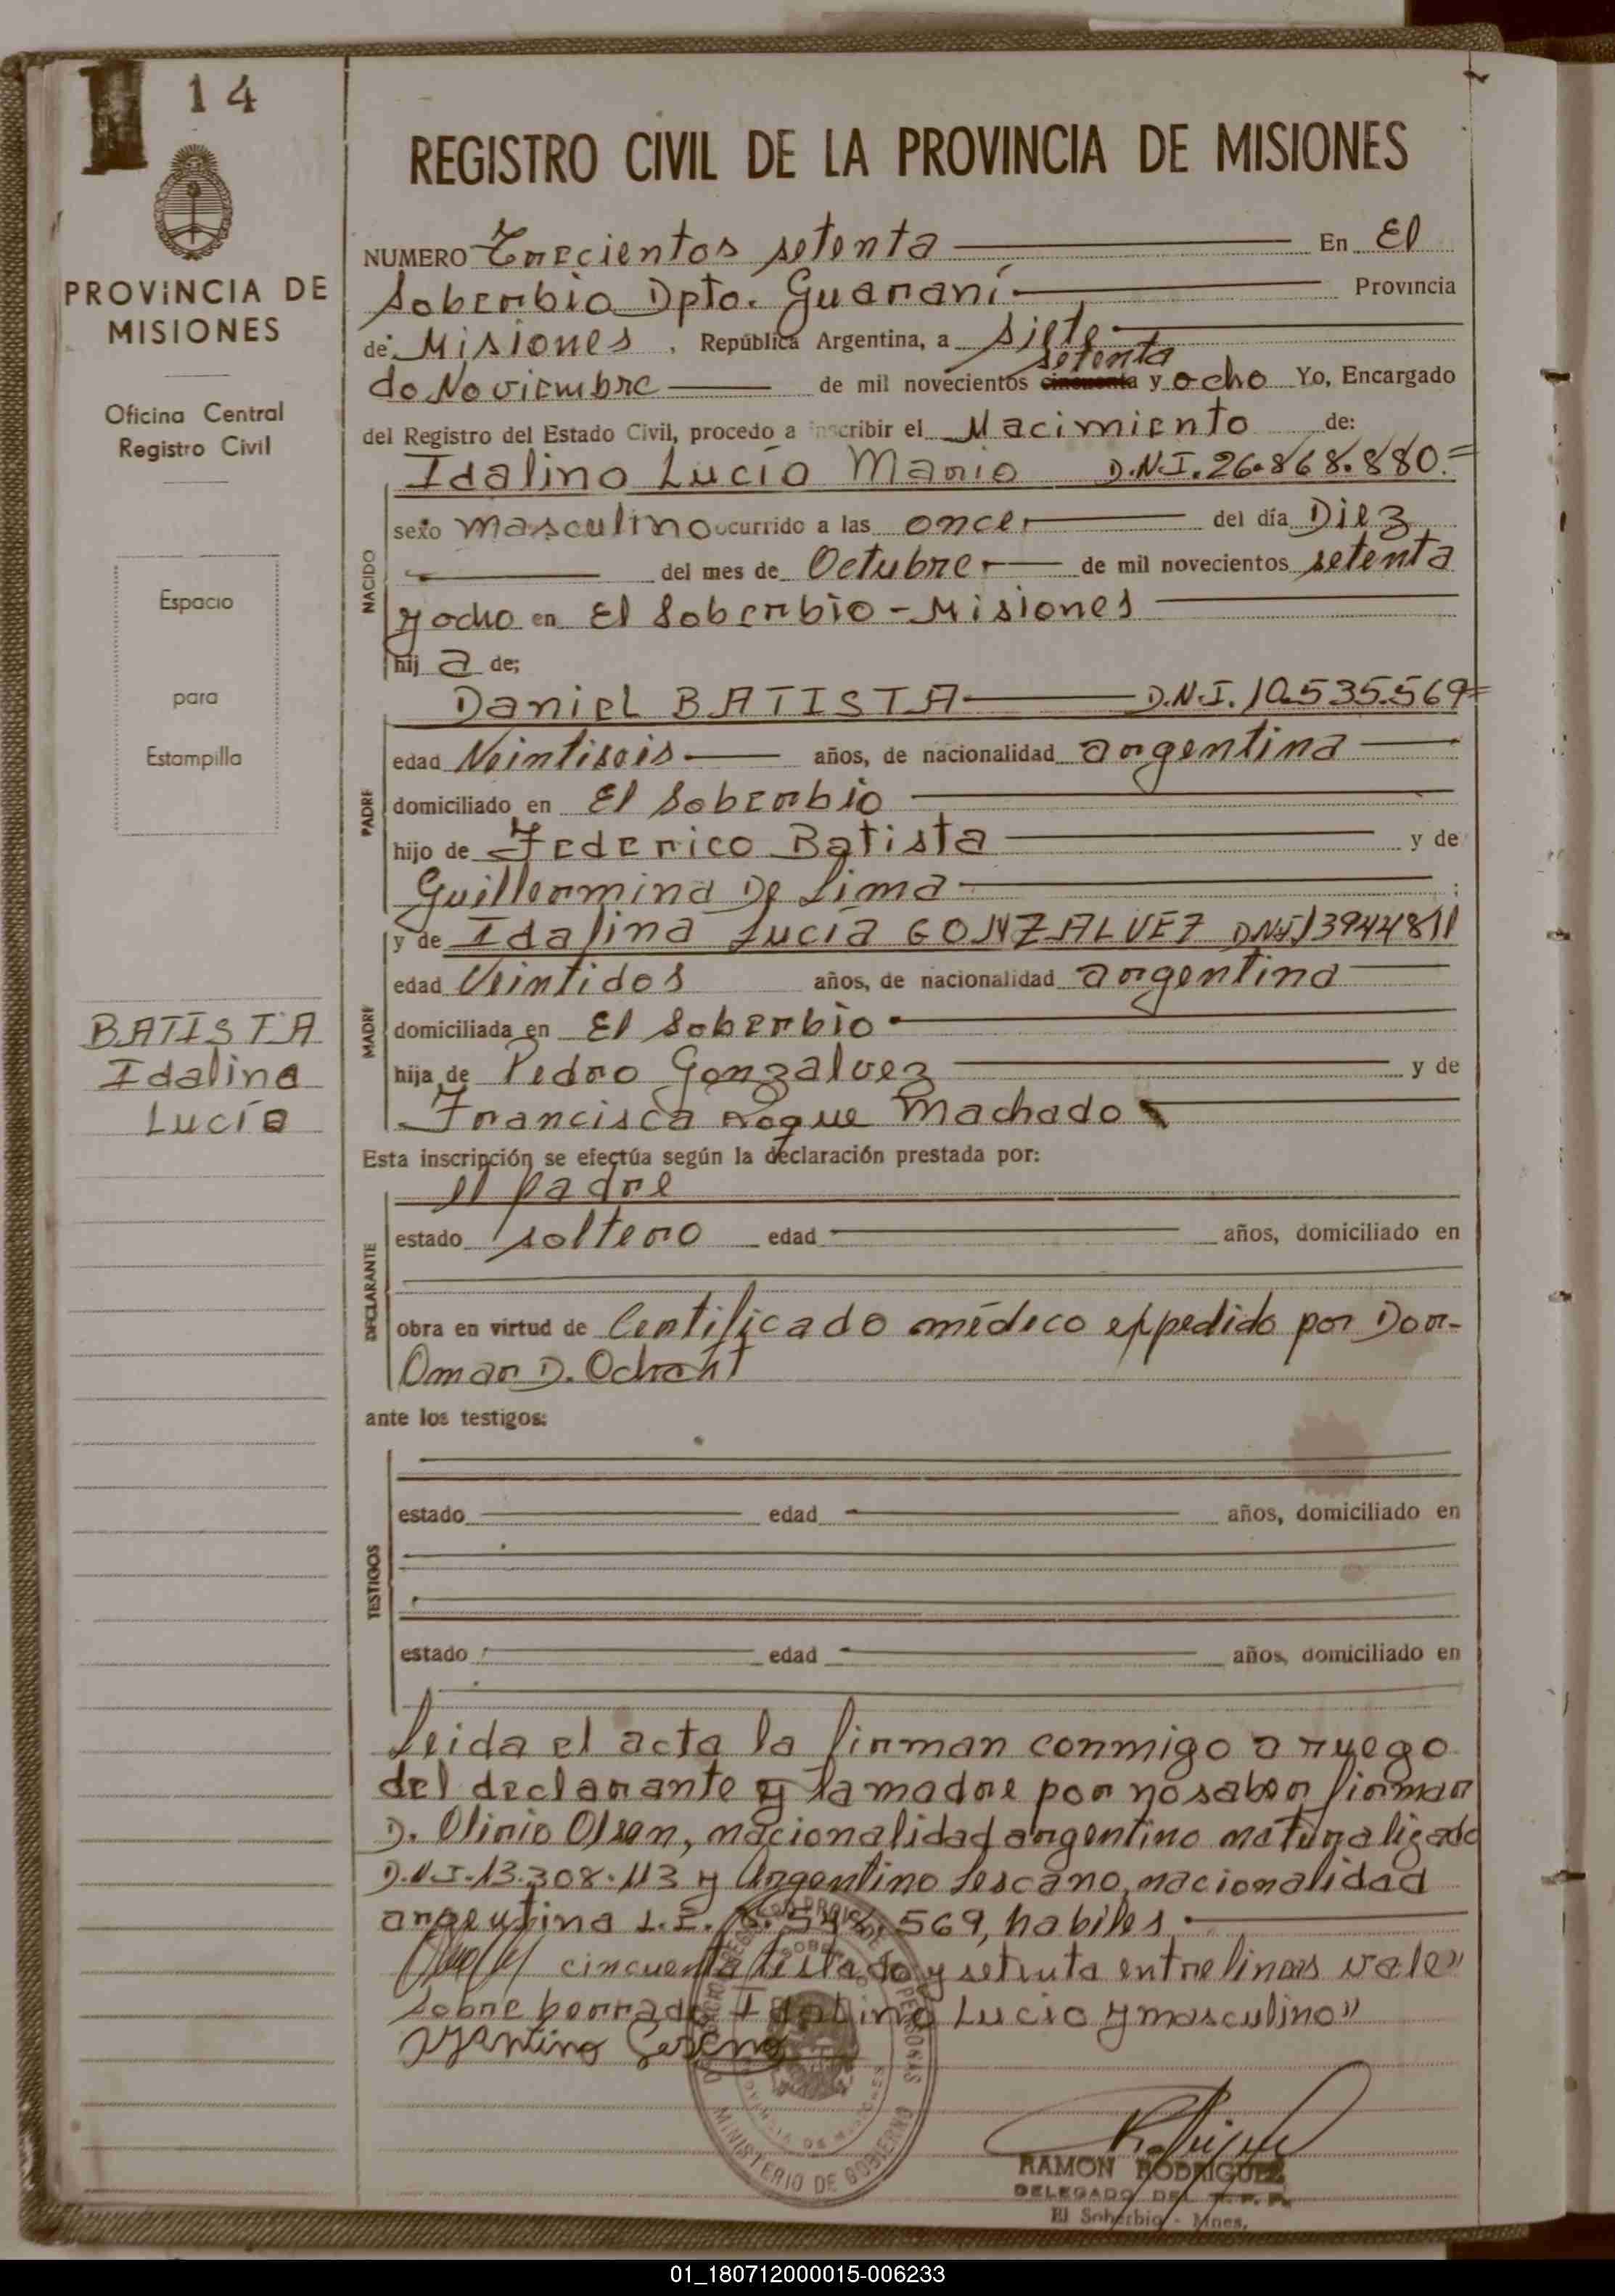 14
PROVINCIA DE
MISIONES
Oficina Central
Registro Civil
Espacio
para
Estampilla
BATISTA
Idalina
Lucía
REGISTRO CIVIL DE LA PROVINCIA DE MISIONES
NUMERO Trecientos setenta En El
Soberbio Dpto. Guaraní Provincia
de Misiones, República Argentina, a siete
setenta
do Noviembre de mil novecientos cincuenta y ocho Yo, Encargado
del Registro del Estado Civil, procedo a inscribir el Nacimiento de:
Idalino Lucio Mario D.N.I. 26.868.880.=
NACIDO
sexo masculino ocurrido a las once del día Diez
del mes de Octubre de mil novecientos setenta
y ocho en El Soberbio - Misiones
hij a de;
PADRE
Daniel BATISTA D.N.I. 10.535.569=
edad Veintiseis años, de nacionalidad argentina
domiciliado en El Soberbio
hijo de Federico Batista y de
Guillermina De Lima ;
MADRE
y de Idalina Lucía GONZALVEZ DNI 13944811
edad Veintidos años, de nacionalidad argentina
domiciliada en El Soberbio
hija de Pedro Gonzalvez y de
Francisca Roque Machado
Esta inscripción se efectúa según la declaración prestada por:
DECLARANTE
el padre
estado soltero edad años, domiciliado en
obra en virtud de Certificado médico expedido por Dor-
Omar D.
ante los testigos:
TESTIGOS
estado edad años, domiciliado en
estado edad años, domiciliado en
Leida el acta la firman conmigo a ruego
del declarante y la madre por no saber firmar
D. Olirio Olsen, nacionalidad argentino naturalizado
D.N.I. 13.308.113 y Argentino Lescano, nacionalidad
argentina L.E. 569, habiles
cincuenta testado y setenta entrelineas vale"
sobre borrado Idalino Lucio y masculino"
MINISTERIO DE GOBIERNO
RAMON RODRIGUEZ
DELEGADO DEL R.P.P.
El Soberbio - Mnes.
01_180712000015-006233